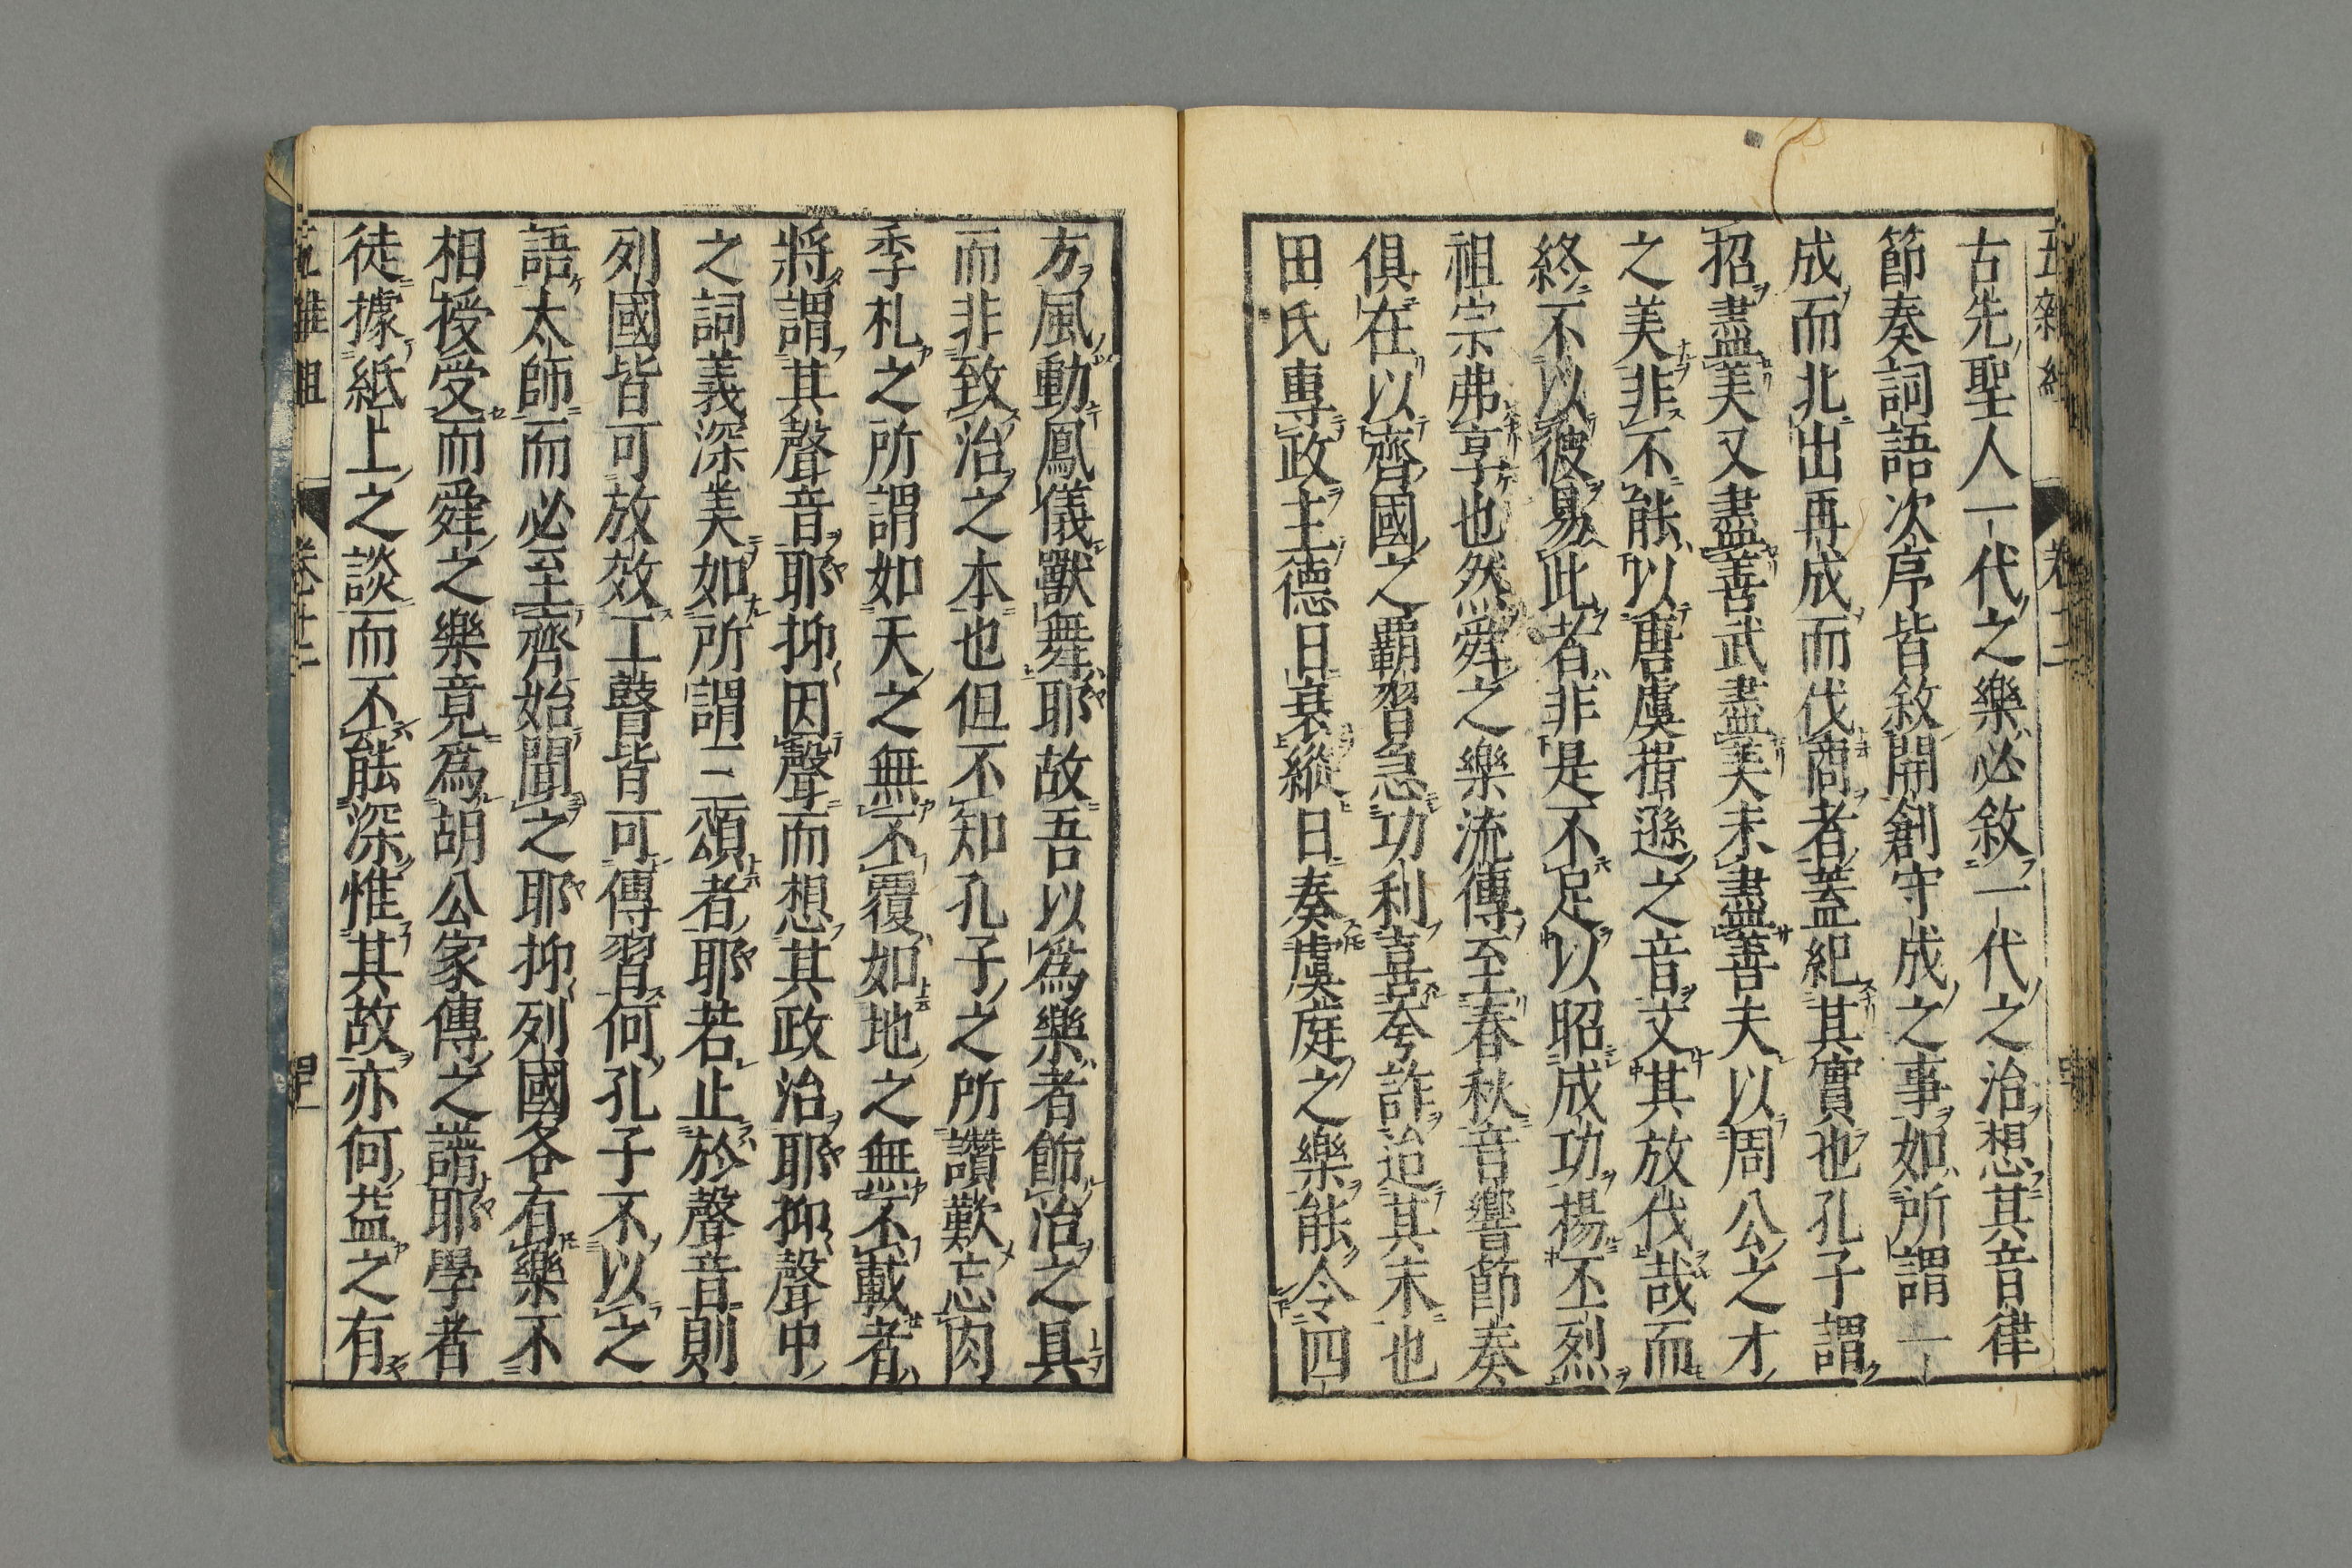 古先聖人一代之樂必敘一代之治想其音律
節奏詞語次序皆敘開創守成之事如所謂一
成而北出再成而伐商者蓋紀其實也孔子謂
招盡美又盡善武盡美未盡善夫以周公之才
之美非不能以唐虞揖遜之音文其放伐哉而
終不以彼易此者非是不足以昭成功揚丕烈
祖宗弗享也然舜之樂流傳至春秋音響節奏
俱在以齊國之覇習急功利喜夸詐迨其末也
田氏專政主德日衰縱日奏虞庭之樂能令四
方風動鳳儀獸舞耶故吾以爲樂者飾治之具
而非致治之本也但不知孔子之所讚歎忘肉
季札之所謂如天之無不覆如地之無不載者
將謂其聲音耶抑因聲而想其政治耶抑聲中
之詞義深美如所謂二頌者耶若止於聲音則
列國皆可放效工瞽皆可傳習何孔子不以之
語太師而必至齊始聞之耶抑列國各有樂不
相授受而舜之樂竟爲胡公家傳之譜耶學者
徒據紙上之談而不能深惟其故亦何益之有